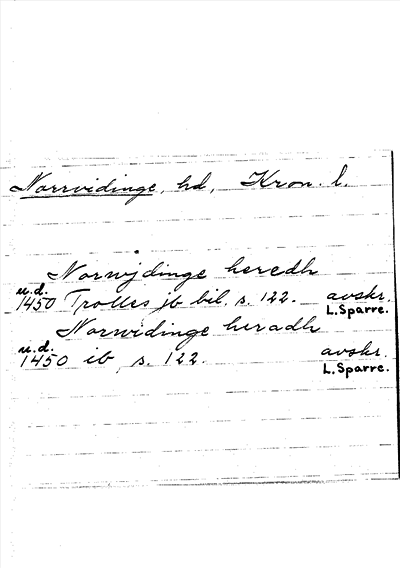 Norrvidinge, hd, Kron. l.
Norwjdinge heredh
u.d.
1450 Trolles jb bil. s. 122. avskr.
L. Sparre.
Norwidinge heradh
u.d.
1450 ib s. 122. avskr.
L. Sparre.